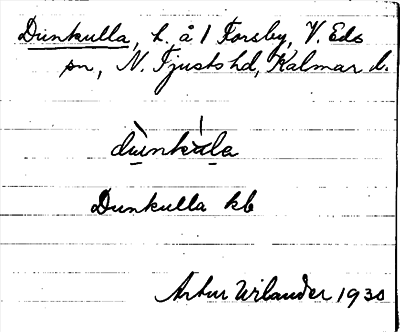 Dunkulla, t. å 1 Forsby, V. Eds
sn, N. Tjusts hd, Kalmar l.
dunkula
Dunkulla kb
Artur Wilander 1930